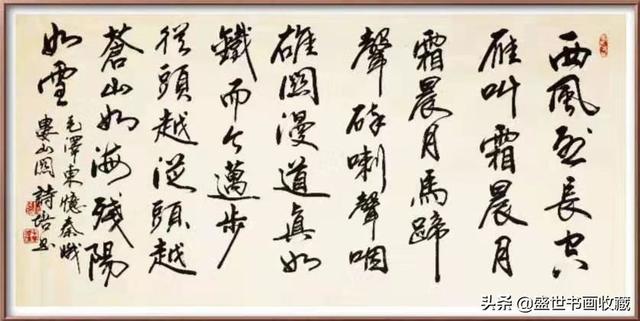 西風烈長空
雁叫霜晨月
霜晨月馬蹄
聲碎喇聲咽
雄関漫道真如
鐵而今邁步
從頭越從頭越
蒼山如海殘陽
如雪
毛澤東憶秦娥
婁山関
头条 @盛世书画收藏